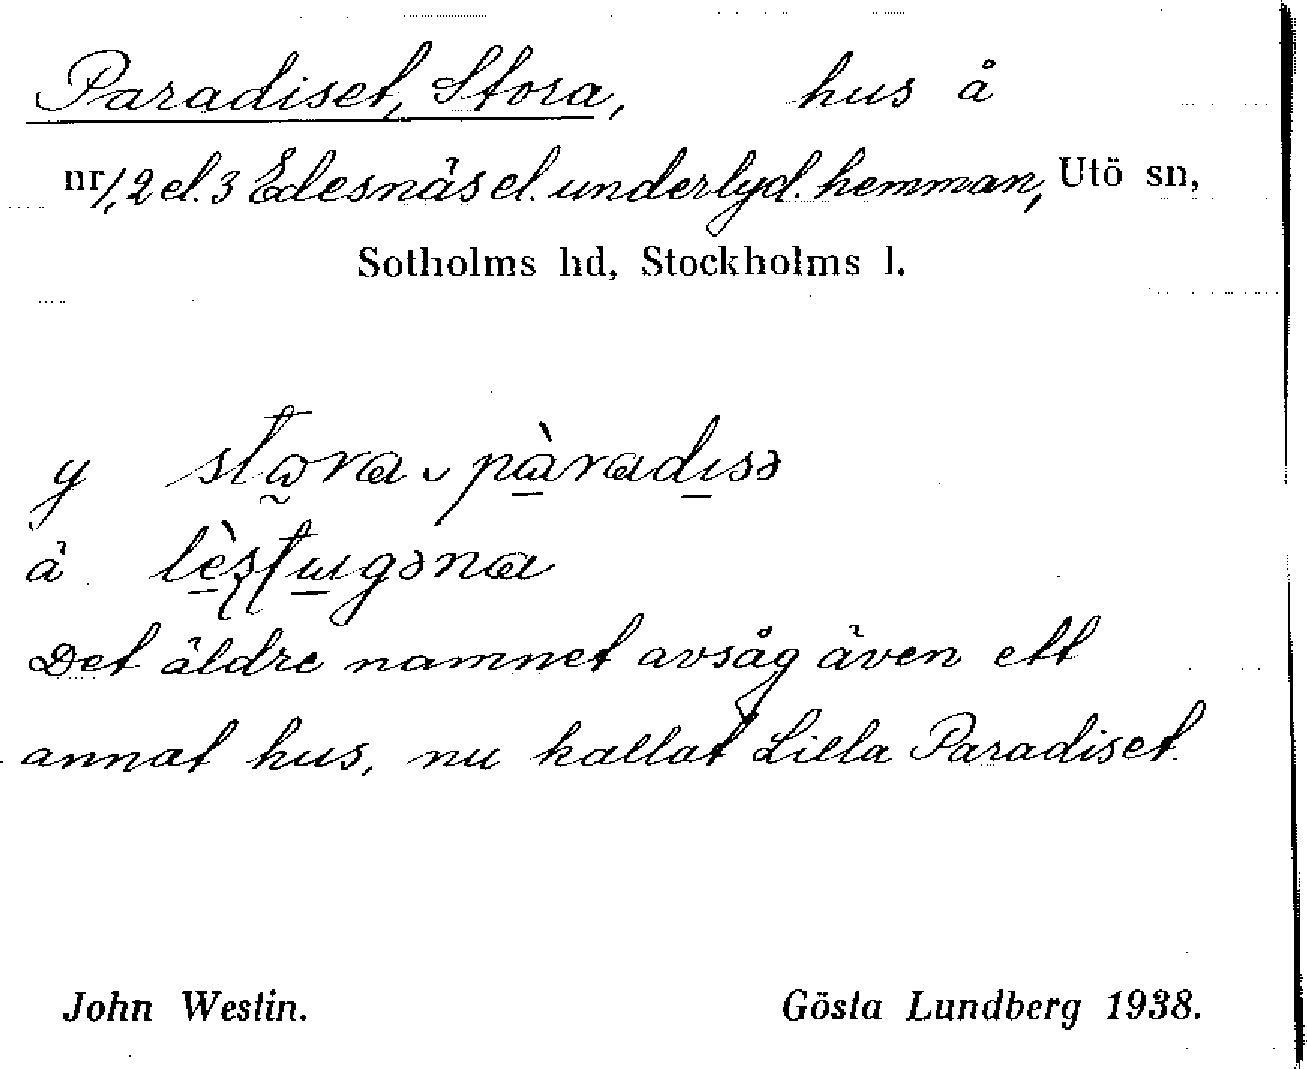 Paradiset, Stora, hus å
nr 1, 2 el. 3 Edesnäs el. underlyd. hemman, Utö sn,
Sotholms hd, Stockholms l.
y stɷra ˬ pàradısə
ä lèsʈɯgəna
Det äldre namnet avsåg även ett
annat hus, nu kallat Lilla Paradiset.
John Westin. Gösta Lundberg 1938.